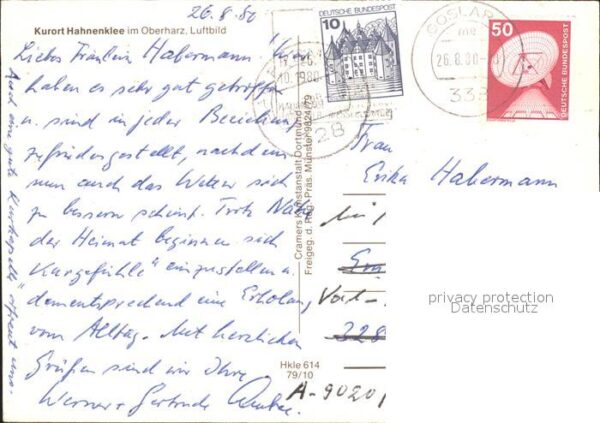 26.8.80
Kurort Hahnenklee im Oberharz, Luftbild
Liebes Fräulein Habermann! Wir
haben es sehr gut getroffen
u. sind in jeder Beziehung
zufriedengestellt, nachdem
nun auch das Wetter sich
zu bessern scheint. Trotz Nähe
der Heimat beginnen sich
"Kurgefühle" einzustellen u.
dementsprechend eine Erholung
vom Alltag. Mit herzlichen
Grüßen sind wir Ihre
Werner + Gertrude
Auch eine gute Kurkapelle erfreut uns.
Cramers Kunstanstalt Dortmund
Freigeg. d. Reg. Präs. Münster 9424/79
Hkle 614
79/10
DEUTSCHE BUNDESPOST
10
10.1980
28
GOSLAR
26.8.80
338
50
DEUTSCHE BUNDESPOST
Frau
Erika Habermann
328
A-9020
privacy protection
Datenschutz